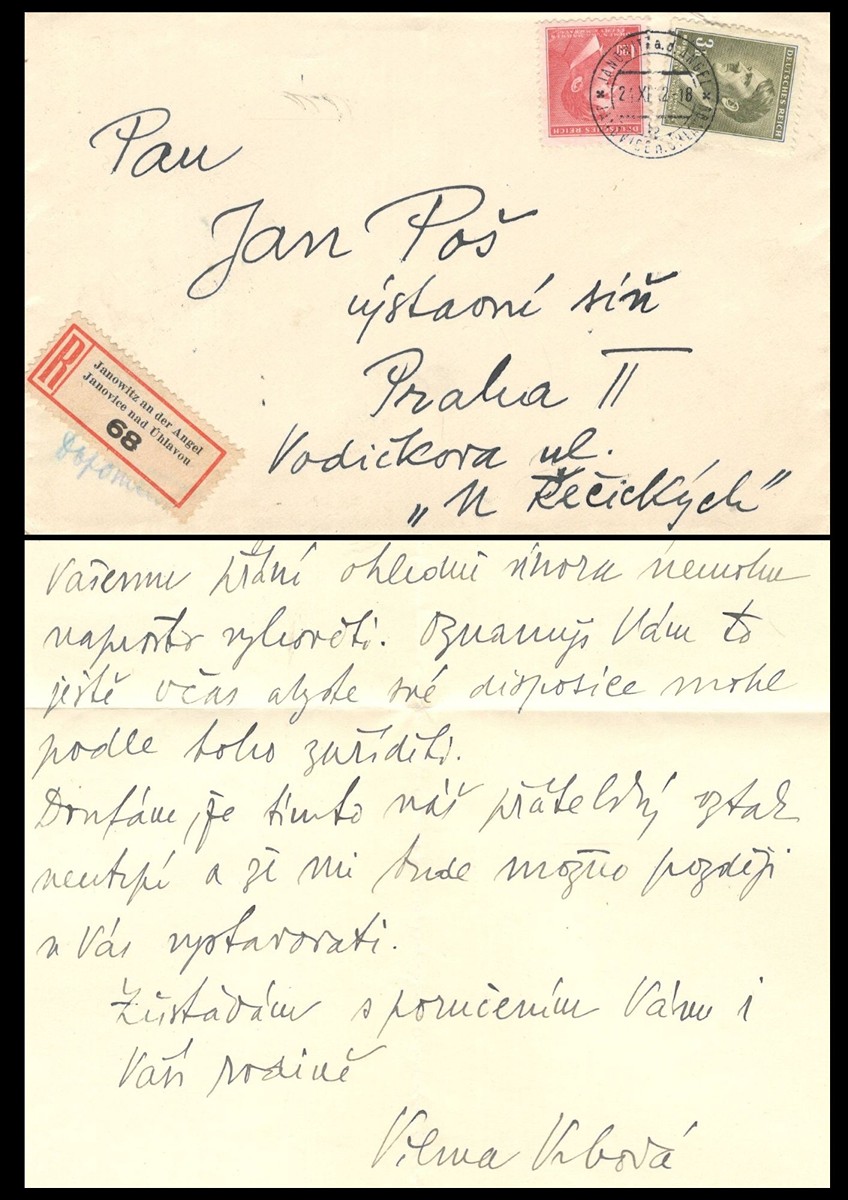 DEUTSCHES REICH
DEUTSCHES REICH
3
21.XI.42-18
Pan
Jan Poš
výstavní síň
Praha II
Vodičkova ul.
„U Řečických"
R
Janowitz an der Angel
Janovice nad Úhlavou
68
Vašemu přání ohledně února nemohu
naprosto vyhověti. Oznamuji Vám to
ještě včas abyste své disposice mohl
podle toho zaříditi.
Doufám, že tímto náš přátelský vztah
neutrpí a že mi bude možno později
u Vás vystavovati.
Zůstávám s poručením Vámi i
Vaší rodině
Vilma Vrbová